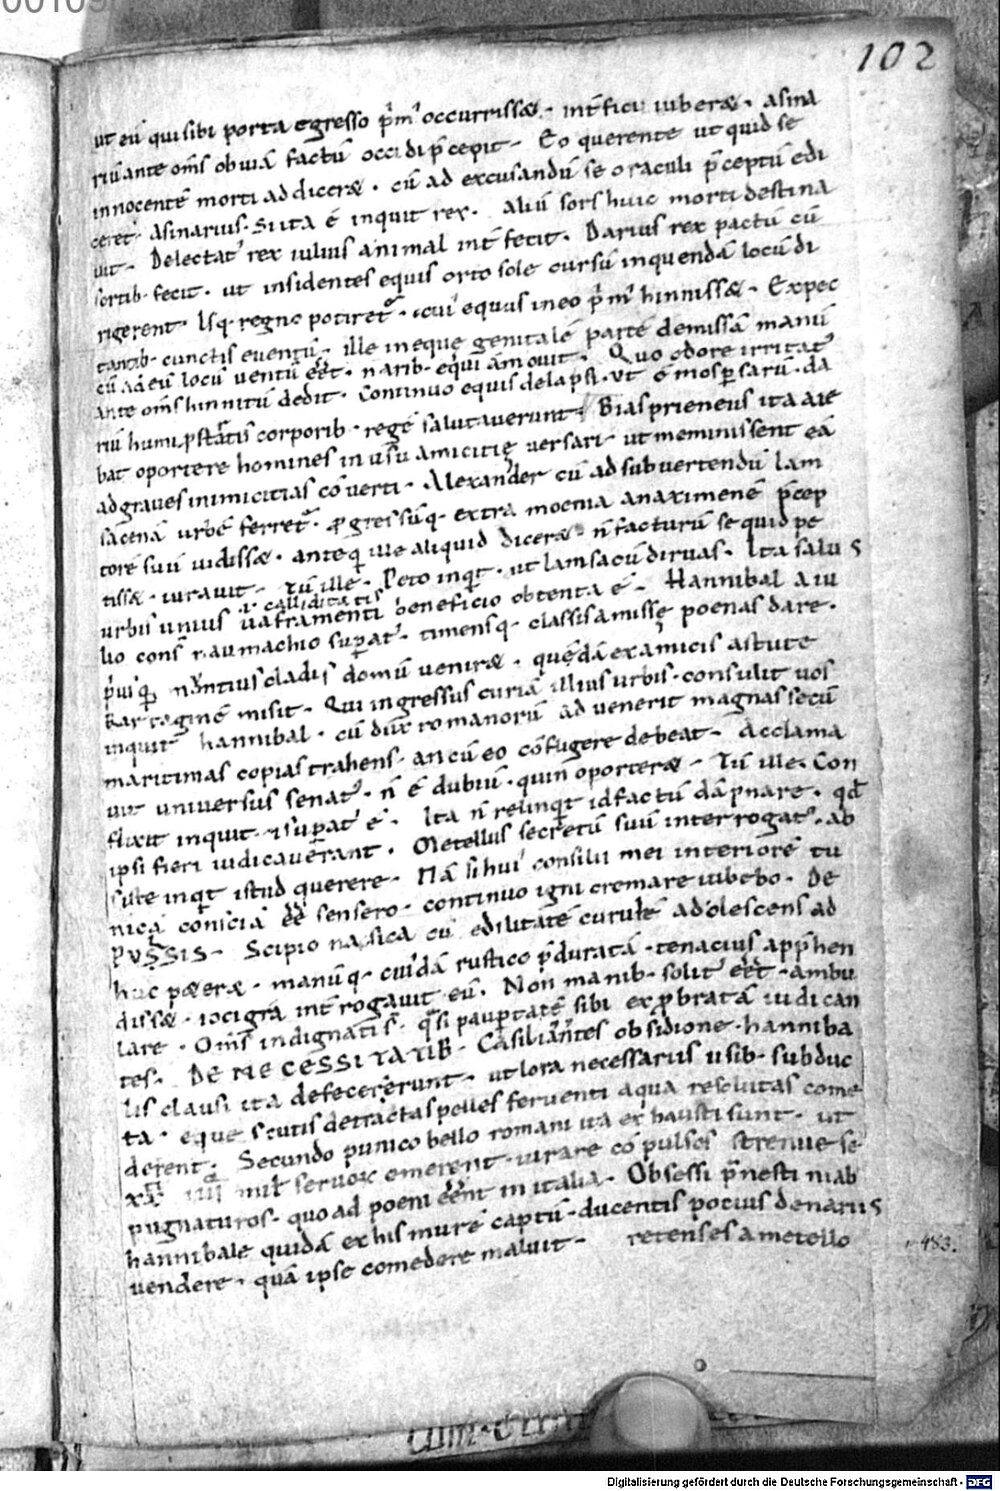 102
ut eū qui sibi porta egresso p̄mꝰ occurrissæ · int̄fici iuberæ · asina
riū ante om̄s obuiā factū occidi p̄cepit · Eo querente ut quid se
innocentē morti addiceræ · cū ad excusandū se oraculi p̄ceptū edi
ceret · asinarius · Si ita ē inquit rex · aliū sors huic morti destina
uit · Delectatꝰ rex iulius animal int̄fecit · Darius rex pactū cū
sortib· fecit · ut insidentes equis orto sole cursū inquendā locū di
rigerent · Isq· regno potiret᷑ · cuiꝰ equus in eo p̄mꝰ hinnissæ · Expec
tantib· cunctis euentū · ille in eque genitalē partē demissā manū
cū ad eū locū uentū eēt · narib· equi āmouit · Quo odore irritatꝰ
ante om̄s hinnitū dedit · Continuo equis delapsi · ut ē mos persarū · da
riū humi p̄stratis corporib· regē salutauerunt · Bias prieneus ita aie
bat oportere homines in usu amicitię uersari · ut meminissent eā
ad graues inimicitias cōuerti · Alexander cū ad subuertendū lam
sacenā urbē ferret᷑ · p̄gressūq· extra moenia anaximenē p̄cep
torē suū uidissæ · anteq· ille aliquid diceræ · n̄ facturū se quid pe
tissæ · iurauit · Tū ille · Peto inqt · ut lamsacū diruas · Ita salus
ł calliditatis
urbis unius uaframenti beneficio obtenta ē · Hannibal a iu
lio cons̄ naumachio supatꝰ · timensq· classis amissę poenas dare ·
p̄usq nuntius cladis domū ueniræ · quēdā ex amicis astute
Kartaginē misit · Qui ingressus curiā illius urbis · consulit uos
inquit hannibal · cū dux romanorū aduenerit magnas secū
maritimas copias trahens · an cū eo cōfugere debeat · Acclama
uit uniuersus senatꝰ · n̄ ē dubiū · quin oporteræ · Tū ille · Con
flixit inquit · ⁊ supatꝰ ē · Ita n̄ relinqt id factū dāpnare · qd
ipsi fieri iudicauerant · Metellus secretū suū interrogatꝰ · ab
siste inqt istud querere · Nā si huiꝰ consilii mei interiorē tu
nicā consciā eē sensero · continuo igni cremare iubebo · De
pussis · Scipio nasica cū edilitatē curulē adolescens ad
huc peteræ · manūq· cuiꝰdā rustico p̄duratā · tenacius app̄hen
dissæ · iocigrā int̄rogauit eū · Non manib· solitꝰ eēt · ambu
lare · Om̄s indignatis · qsi paupertatē sibi exp̄bratā iudican
tes · DE NECESSITATIB· Casilinates obsidione · hanniba
lis clausi ita defecererunt · ut lora necessariis usib· subduc
ta · eque scutis detractas pelles feruenti aqua resolutas come
derent · Secundo punico bello romani ita exhausti sunt · ut
xx iiii milꝉ seruos emerent · iurare cōpulsos strenue se
pugnaturos · quo ad poeni eēnt in italia · Obsessi p̄nestini ab
hannibale quidā ex his murē captū · ducentis potius denariis
uendere · quā ipse comedere maluit · retenses a metello
483.
Digitalisierung gefördert durch die Deutsche Forschungsgemeinschaft · DFG